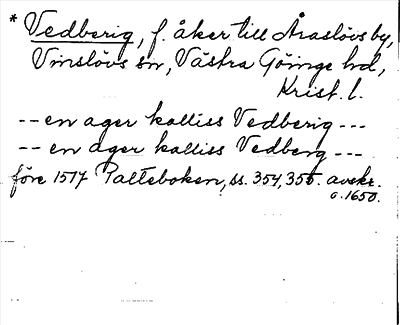 * Vedberig, f. åker till Åraslövs by,
Vinslövs sn, Västra Göinge hd,
Krist. l.
-- en ager kalliss Vedberig ---
-- en ager kalliss Vedberg ---
före 1517 Palteboken, ss. 354, 355. avskr.
c. 1650.